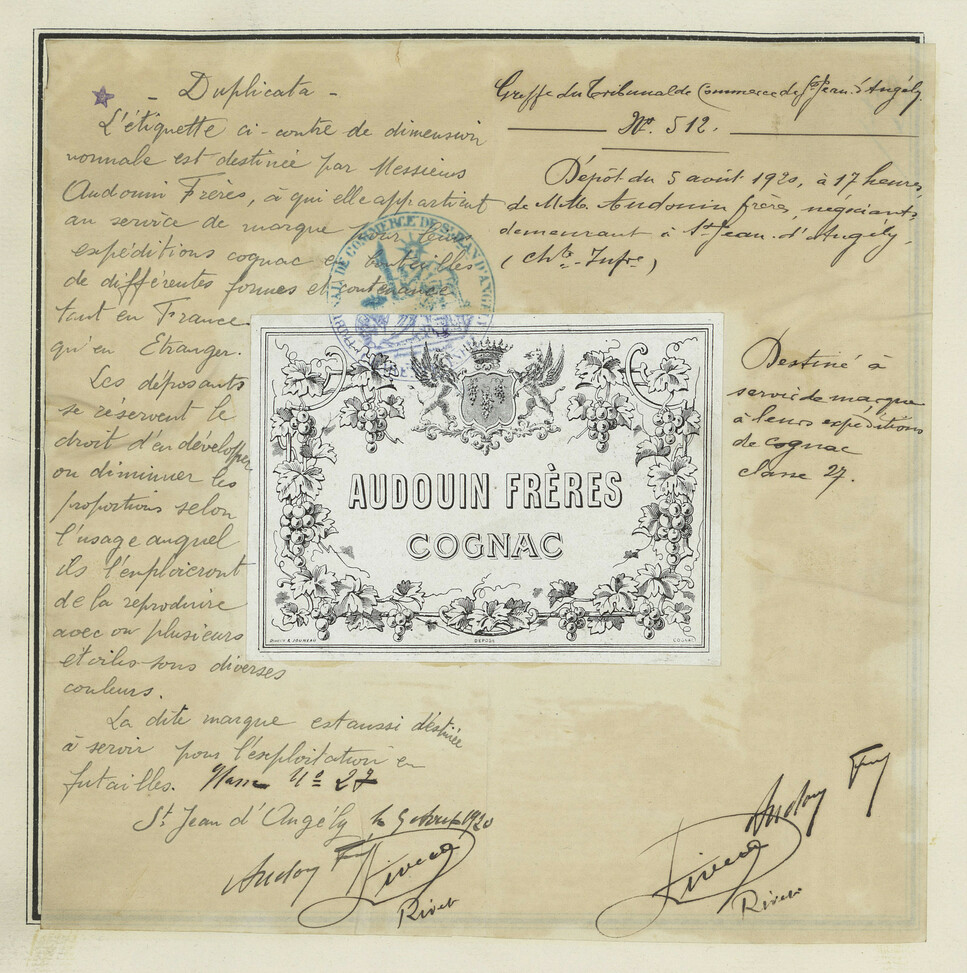 - Duplicata -
L'étiquette ci-contre de dimension
normale est destinée par Messieurs
Audouin Frères, à qui elle appartient
au service de marque pour leurs
expéditions cognac en bouteilles
de différentes formes et contenance
tant en France
qu'en Etranger.
Les déposants
se réservent le
droit d'en développer
ou diminuer les
proportions selon
l'usage auquel
ils l'emploieront
de la reproduire
avec ou plusieurs
étoiles sous diverses
couleurs.
La dite marque est aussi déstinée
à servir pour l'exploitation en
futailles. Classe Nº 27
St Jean d'Angély le 5 Août 1920
Rivet
Greffe du Tribunal de Commerce de St Jean d'Angély
Nº. 512.
Dépôt du 5 août 1920, à 17 heures,
de M.M. Audouin frères, négociants,
demeurant à St Jean d'Angély
(Chte-Infre)
AUDOUIN FRÈRES
COGNAC
JOUNEAU
DÉPOSÉ
COGNAC
Destiné à
servir de marque
à leurs expéditions
de cognac
classe 27.
Rivet